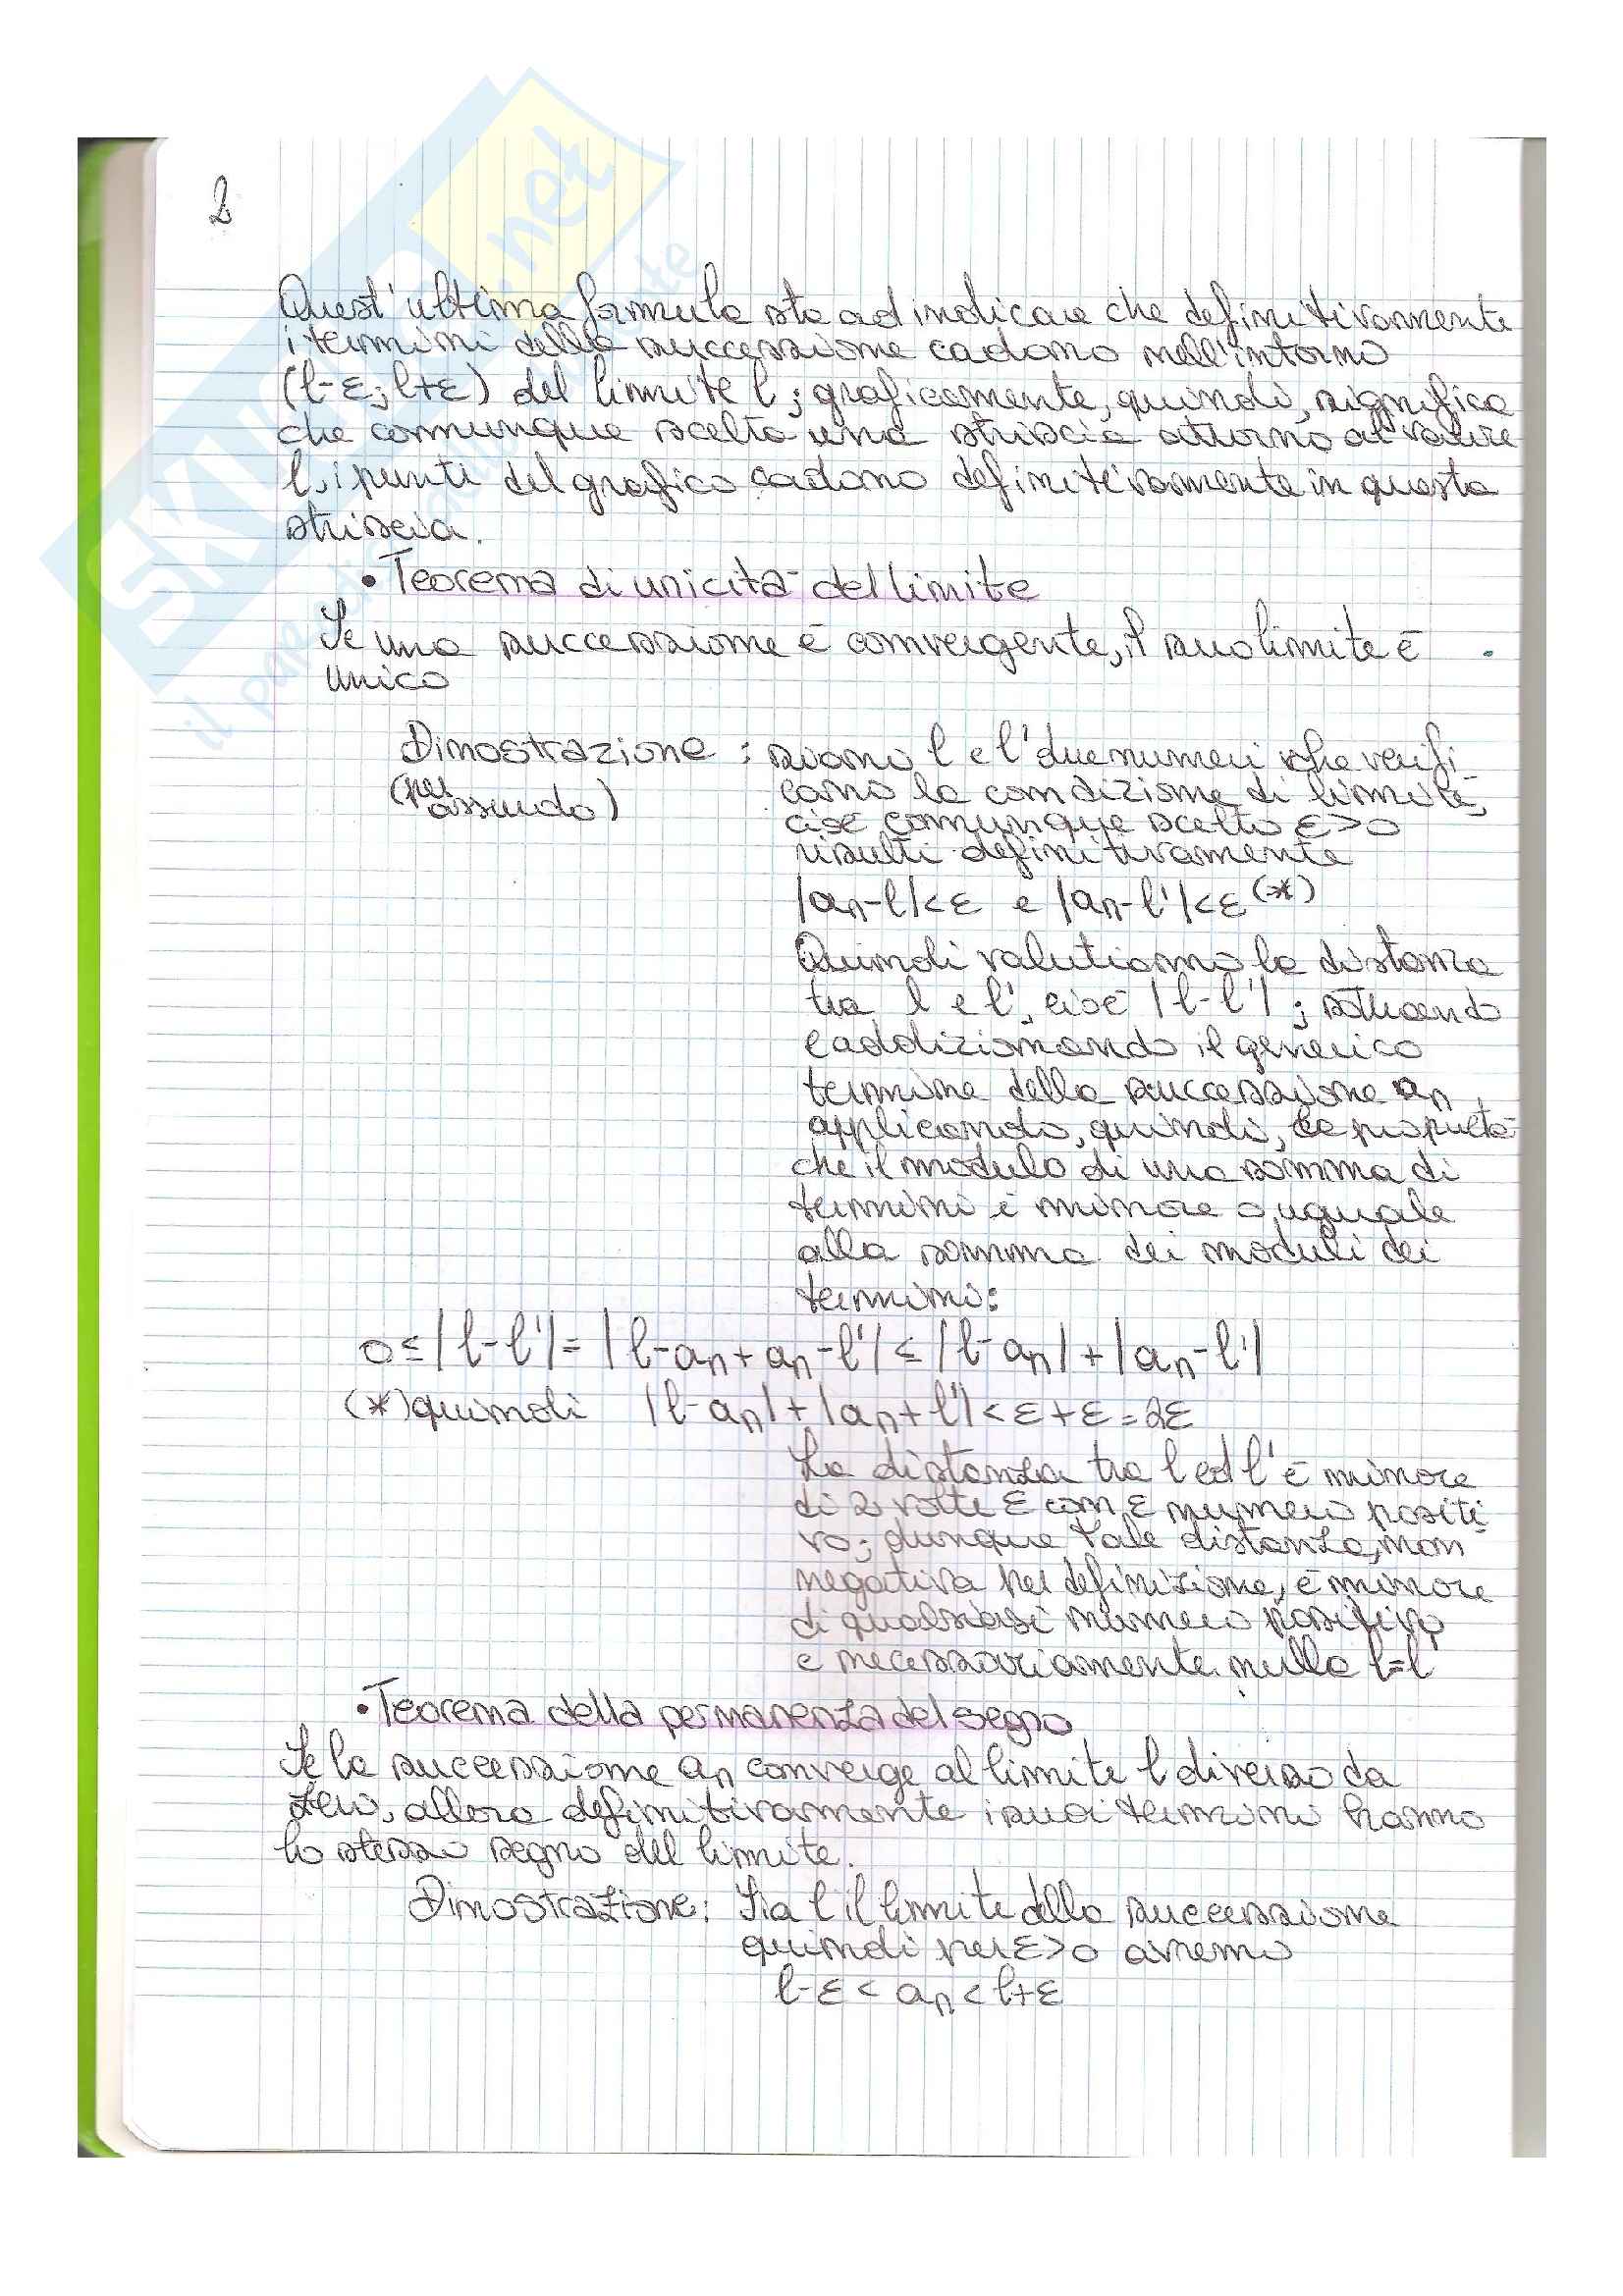 2
Quest'ultima formula sta ad indicare che definitivamente
i termini della successione cadono nell'intorno
(l-ε; l+ε) del limite l; graficamente, quindi, significa
che comunque scelta una striscia attorno al valore
l, i punti del grafico cadono definitivamente in questa
striscia.
• Teorema di unicità del limite
Se una successione è convergente, il suo limite è
unico
Dimostrazione : siano l e l' due numeri che verifi-
(per assurdo) cano la condizione di limite,
cioè comunque scelto ε>0
risulti definitivamente
|an-l|<ε e |an-l'|<ε (*)
Quindi valutiamo la distanza
tra l e l', cioè |l-l'| ; sottraendo
e addizionando il generico
termine della successione an,
applicando, quindi, la proprietà
che il modulo di una somma di
termini è minore o uguale
alla somma dei moduli dei
termini:
0≤|l-l'|=|l-an+an-l'|≤|l-an|+|an-l'|
(*)quindi |l-an|+|an+l'|<ε+ε=2ε
La distanza tra l ed l' è minore
di 2 volte ε con ε numero positi-
vo; dunque tale distanza, non
negativa per definizione, è minore
di qualsiasi numero positivo
e necessariamente nulla l=l'
• Teorema della permanenza del segno
Se la successione an converge al limite l diverso da
zero, allora definitivamente i suoi termini hanno
lo stesso segno del limite.
Dimostrazione: Sia l il limite della successione
quindi per ε>0 avremo
l-ε < an < l+ε